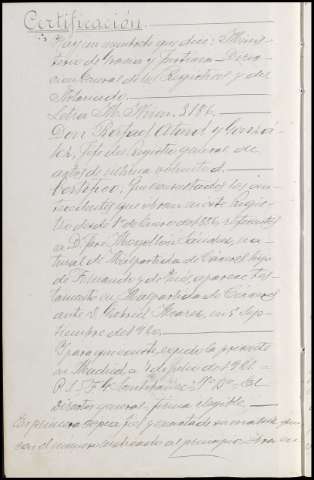 Certificación.
Hay un membrete que dice: Minis-
terio de Gracia y Justicia Direc-
cion General de los Registros y del
Notariado.
Letra M. Núm. 3186
Don Rafael Atard y Gonzá-
lez, Jefe del Registro general de
actos de última voluntad.
Certifico: Que consultados los an-
tecedentes que obran en este Regis-
tro desde 1º de Enero de 1886, referentes
a D. José Mogollon Sánchez, na-
tural de Malpartida de Cáceres, hijo
de Fernando y de Inés, aparece tes-
tamento en Malpartida de Cáceres
ante D. Gabriel Alvarez, en 5 Sep-
tiembre de 1920.
Y para que conste expido la presente
en Madrid a de Julio de 1921
P. I. Fº Santibáñez Vº Bº El
Director general, firma elegible.
Es primera copia fiel y exacta de su matriz, que
con el número señalado al principio obra en